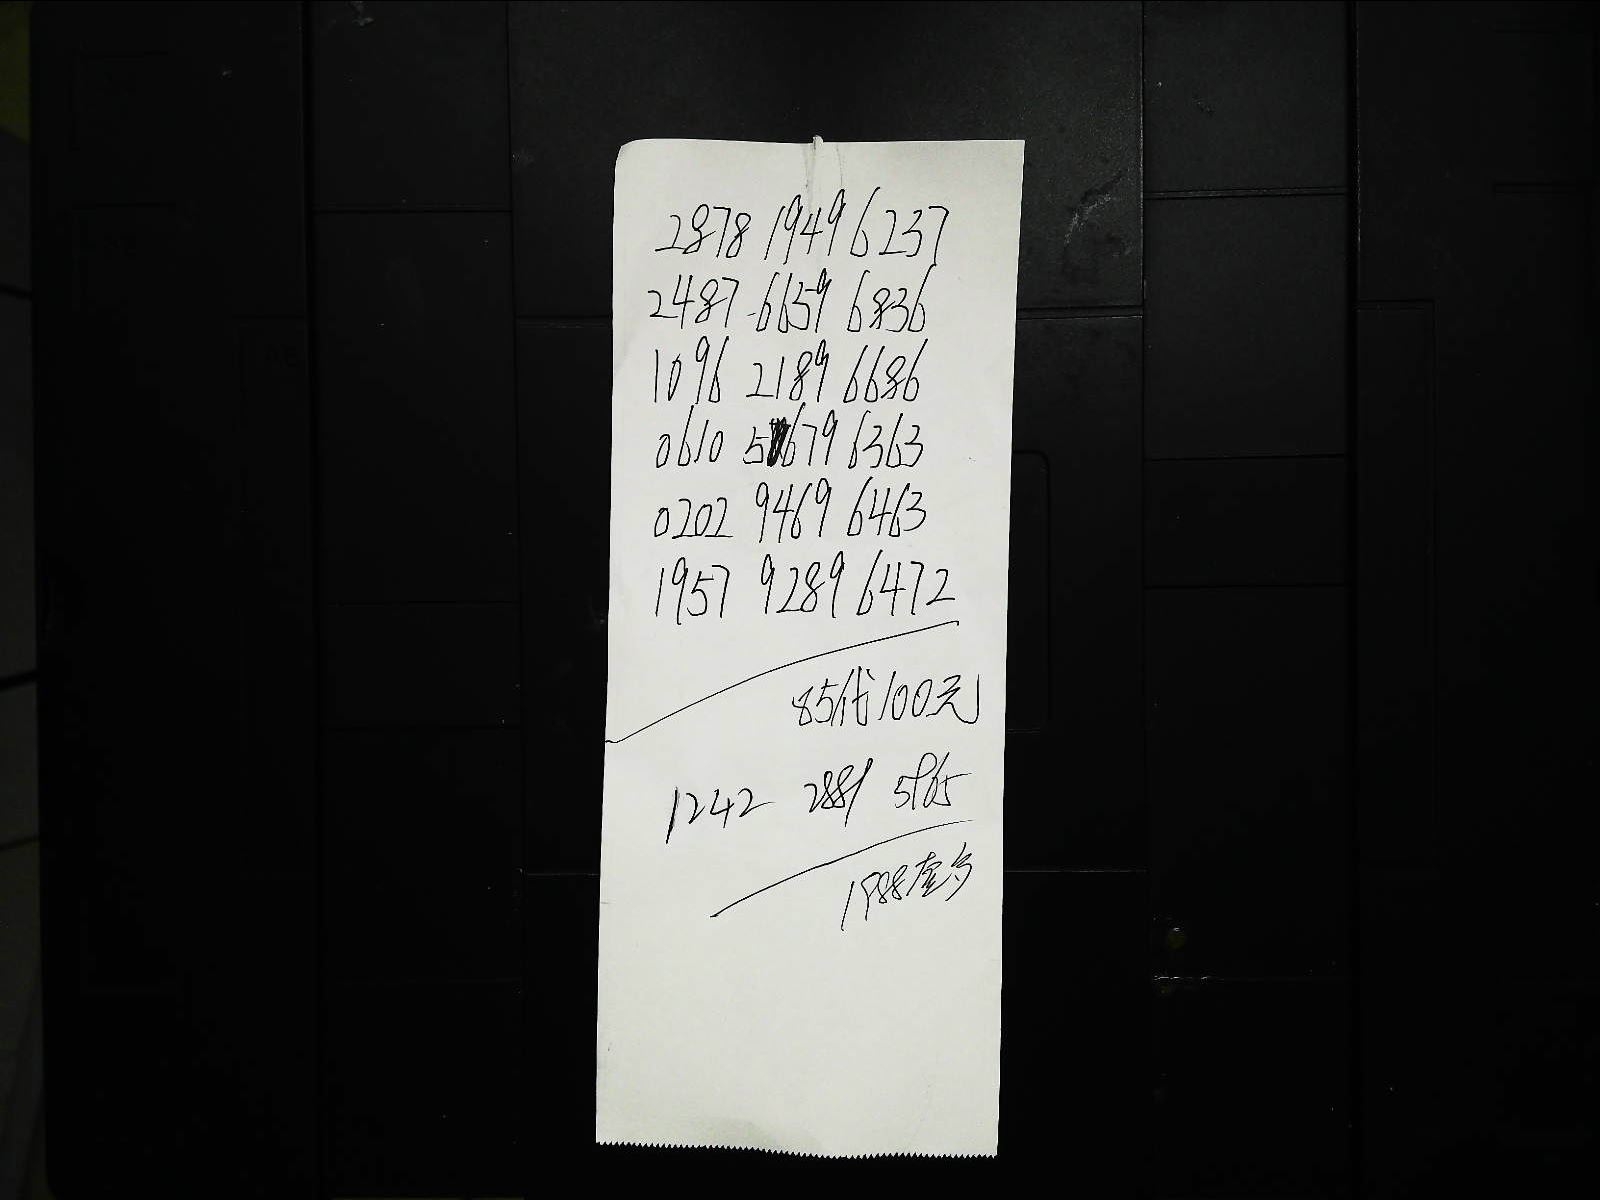 2878 1949 6237
2487 6659 6836
1096 2189 6686
0610 5679 6363
0202 9469 6463
1957 9289 6472
85代100元
1242 2881 5965
1988